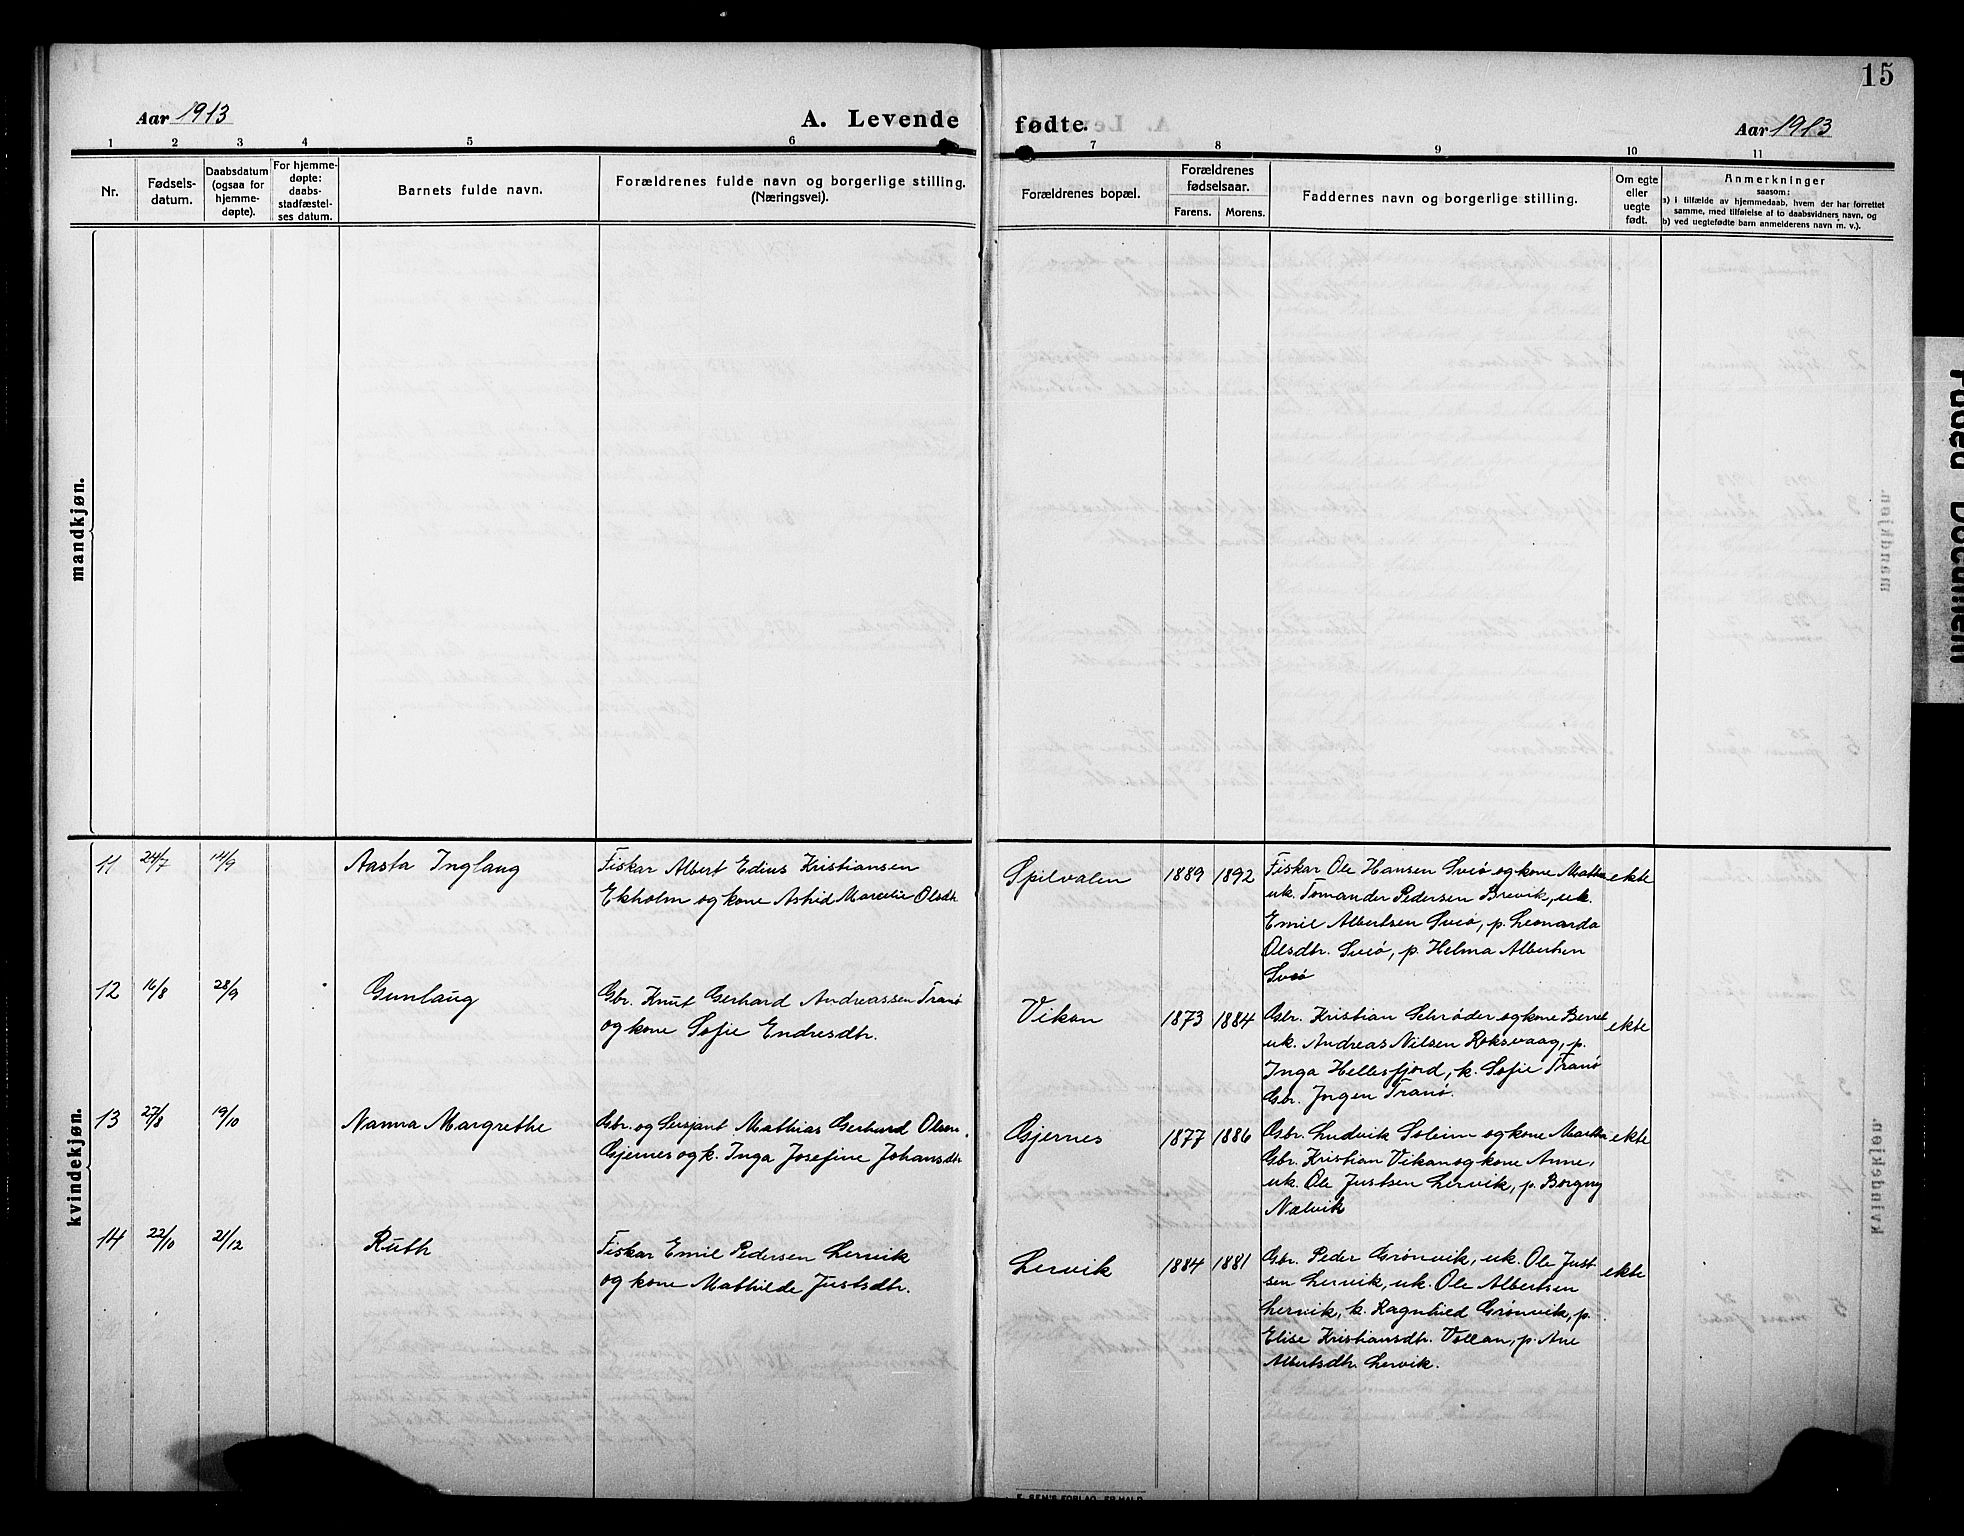 15
Aar 1913
A. Levende fødte.
Aar 1913
1 2 3 4 5 6 7 8 9 10 11
Nr.
Fødsels-
datum.
Daabsdatum
(ogsaa for
hjemme-
døpte).
For hjemme-
døpte:
daabs-
stadfæstel-
ses datum.
Barnets fulde navn.
Forældrenes fulde navn og borgerlige stilling.
(Næringsvei).
Forældrenes bopæl.
Forældrenes
fødselsaar.
Farens. Morens.
Faddernes navn og borgerlige stilling.
Om egte
eller
uegte
født.
Anmerkninger
saasom:
a) i tilfælde av hjemmedaab, hvem der har forrettet
samme, med tilføielse af to daabsvidners navn, og
b) ved uegtefødte barn anmelderens navn m. v.).
mandkjøn.
kvindekjøn.
11 24/7 14/9
Aasta Inglaug
Fiskar Albert Edius Kristiansen
Ekholm og kone Astrid Marcelie Olsdtr
Spilvalen
1889 1892
Fiskar Ole Hansen Sveø og kone Martha
uk. Tomander Pedersen Brevik, uk.
Emil Albertsen Sveø, p. Leonarda
Olsdtr. Sveø, p. Helma Albertsen
Sveø
ekte
12 16/8 28/9
Gunlaug
Gbr. Knut Gerhard Andreassen Tranø
og kone Sofie Endresdtr.
Vikan
1873 1884
Gbr. Kristian Schrøder og kone Berret
uk. Andreas Nilsen Roksvaag, p.
Inga Hellesfjord, k. Sofie Tranø
Gbr. Jørgen Tranø.
ekte
13 27/8 19/10
Nanna Margrethe
Gbr. og Sersjant Mathias Gerhard Olsen
Gjernes og k. Inga Josefine Johansdtr
Gjernes
1877 1886
Gbr. Ludvik Soleim og kone Martha
Gbr. Kristian Vikan og kone Anne,
uk. Ole Justsen Lervik, p. Borgny
Nelvik
ekte
14 22/10 21/12
Ruth
Fiskar Emil Pedersen Lervik
og kone Mathilde Justsdtr.
Lervik
1884 1881
Gbr. Peder Grønvik, uk. Ole Just
sen Lervik, uk. Ole Albertsen
Lervik, k. Ragnhild Grønvik, p.
Elise Kristiansdtr. Vollan, p. Ane
Albertsdtr. Lervik.
ekte
Faded Document